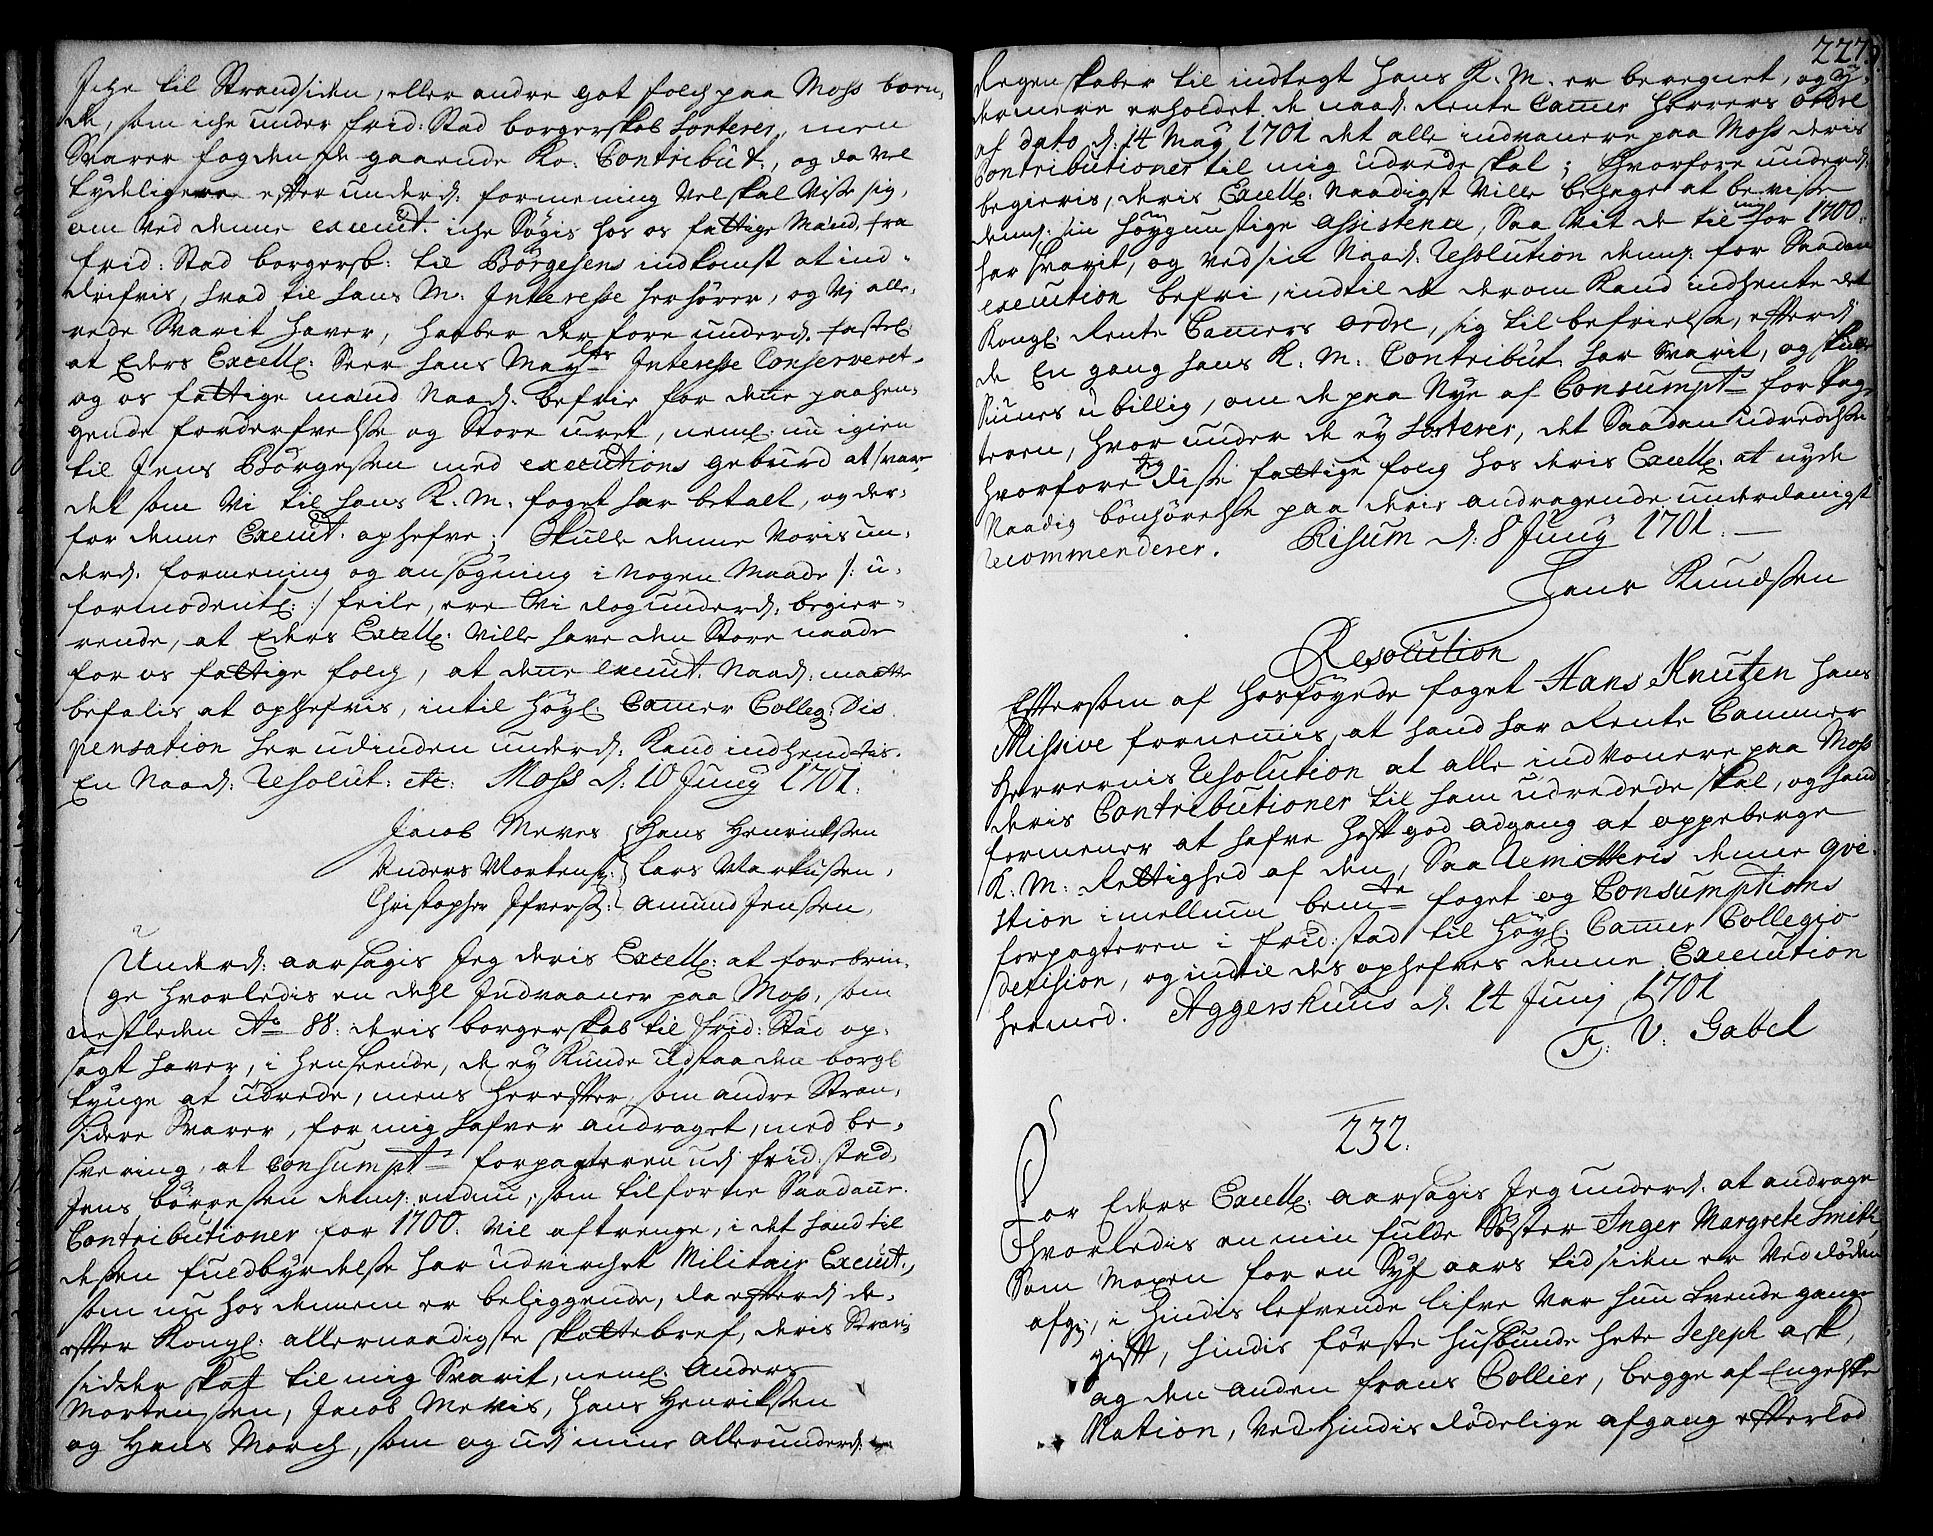 Iche til Strandsiden, eller andre got folch paa Moss boen,
de, som iche under frid: Stad borgerskab Sorterer, men
Svarer fogden de gaaende Ko: Contribut:, og da vel
tydeligere efter underd: formening vel skal Visse sig,
om ved denne execut: iche Søgis hos os fattige Mænd fra
frid: Stad borgersk: til Børgesens indkomst at ind-
drifvis, hvad til hans M: Interesse henhører, og Vi alle,
rede Svarit haver, haaber derfore underd. fastel:
at Eders Excell: Seer hans Mayts Interesse Conserveret
og os fattige mænd Naad: befrie for dene paahen,
gende forderfvelsse og Store uret, neml: nu igien
til Jens Børgessen med executions geburd at svare
det som Vi til hans K. M. foget har betalt, og der:
for denne Execut: ophefve; Skulle denne Voris un,
derd: formening og ansøgning i Nogen Maade /: u,
formodentl: :/ feile, ere Vi dog underd: begier,
rende, at Eders Excell: ville have den Store naade
for os fattige folch, at dene execut: Naad: maatte
befalis at ophefvis, intil høyl: Camer Colleg: Dis
pensation her udinden underd: Kand indhendtis.
En Naad: Resolut: etc: Moss d: 10 Junij 1701.
Jacob Meves Hans Henrikssen
Anders Mortens: Lars Markussen,
Christopher Ifverss: Amund Jenssen,
Underd: aarsagis Jeg deris Excell: at forebrin,
ge hvorledis en dehl Indvaaner paa Moss, som
nestleden Ao 88: deris borgerskab til frid: Stad op,
sagt haver, i henseende, de ey Kunde udstaa den borgl
tynge at udrede, mens herefter, som andre Stran,
sidere Svarer, for mig hafver andraget, med be,
sværing, at Consumpt forpagteren udj frid: stad,
Jens børressen dennem endnu, som tilforne Saadane
Contributioner for 1700. vil aftrenge, i det hand til
dessen fuldbyrdelsse har udvirchet Militair Execut:,
som nu hos dennem er beliggende, da efterdj de,
efter Kongl: allernaadigste skattebref, deris Stran,
sidder skat til mig Svarit, neml: Anders
Mortenssen, Jacob Mevis, Hans Henrikssen
og Hans Morch, som og udj mine allerunderd:
227.
Regenskaber til indtegt hans K. M. er beregnet, og y,
dermere erholdet de naad: Rente Camer Herrers ordre
af dato d: 14 May 1701 det alle indvanere paa Moss deris
Contributioner til mig udrede skal; Hvorfore underd:
begieris, deris Excell: Naadigst Ville behaget at bevisse
dennem sin høygunstige assistence, Saa vit de til mig for 1700.
har Svarit, og ved sin Naad: Resolution dennem for Saadan
execution befri, indtil de derom Kand indhente det
Kongl: Rente Camers ordre, sig til befrielsse, efterdj
de En gang hans K. M: Contribut: har Svarit, og skulle
Siunes u billig, om de paa Nye af Consumpt: forPag,
teren, hvor under de ey Sorterer, det Saadan udredelsse
hvorfore Jeg disse fattige folch hos deris Excell: at nyde
Naadig bønhørelsse paa deris andragende underdanigst
recommenderer. Risum d: 8 Junij 1701. —
Hans Knudssen
Resolution
Eftersom af hosføyede foget Hans Knutzen hans
Missive fornemis, at hand har Rente Cammer
Herrernis Resolution at alle indVonere paa Moss
deris Contributioner til ham udredede skal, og hand
formener at hafve best god adgang at oppeberge
K: M: Rettighed af dem, Saa Remitteris denne qve,
stion imellum bemte foget og Consumptions
forpagteren i frid: stad til Høyl: Camer Collegio
decision, og indtil des ophefves denne Execution
hermed. Aggershuus d. 14 Junj 1701
F: V: Gabel
232.
For Eders Excell: aarsagis Jeg underd: at andrage
hvorledis en min fulde Søster Inger Margrete Smith
Som Moxen for en Syf aars tid siden er Ved døden
afg:, i hindis lefvende lifve var hun tvende gange
gift, hindis første Husbunde hete Jeseph Ask,
og den anden frans Collier, begge af Engelske
Nation, Ved Hindis dødelige afgang efterlod